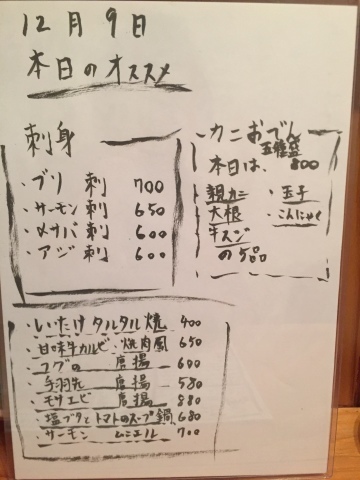 12月9日
本日のオススメ
刺身
・ブリ 刺 700
・サーモン 刺 650
・〆サバ 刺 600
・アジ 刺 600
カニおでん
五種盛
本日は、 800
親カニ ・玉子
大根 ・こんにゃく
牛スジ
の5品
・しいたけタルタル焼 400
・甘味牛カルビ・焼肉風 650
・コブの 唐揚 600
・手羽先 唐揚 580
・モサエビ 唐揚 880
・塩ブタとトマトのスープ鍋 680
・サーモン ムニエル 700